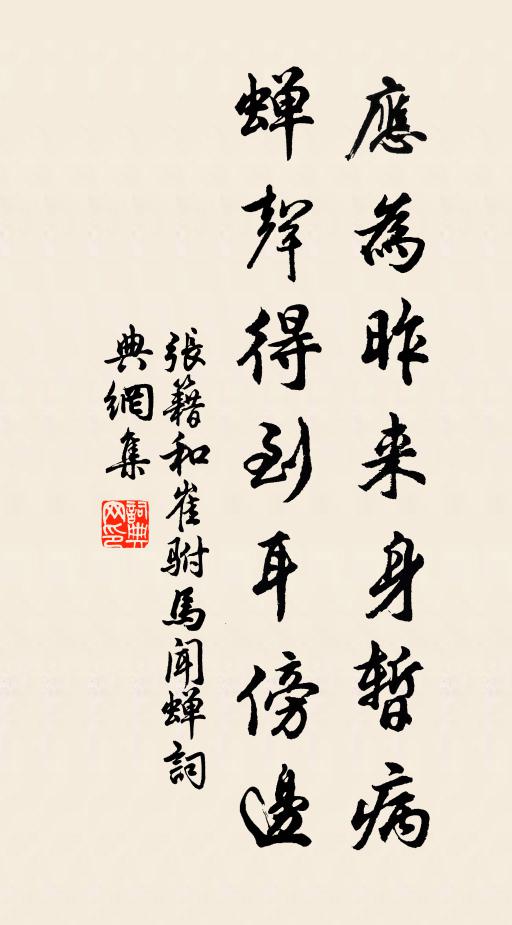 應為昨来身暫病
蝉聲得到耳傍邊
張籍和崔駙馬聞蝉詞
典網集
詞典
网印